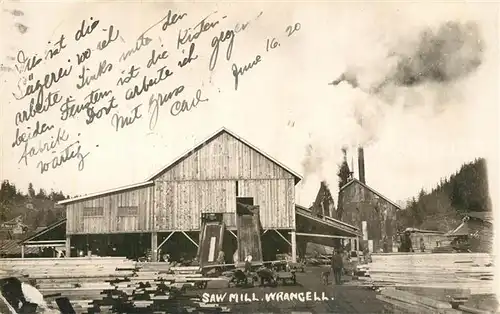 Dis ist die
Sägerei wo ich
arbeite. Links mite den
beiden Fenstern ist die Kisten-
fabrik. Dort arbeite ich gegen
wärtig. Mit Gruss
Carl
June 16. 20
SAW MILL. WRANGELL.